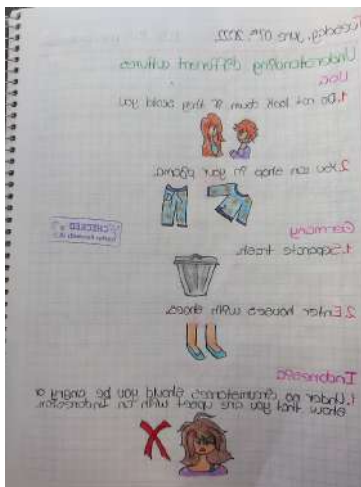 June 07th 2022.
Understanding different cultures
1. Do not look down if they scold you
2. You can shop in your
CHECKED
Germany
1. Separate trash.
2. Enter houses with shoes.
Indonesia
1. Under no circumstances should you be angry or
show that you are upset with an Indonesian.